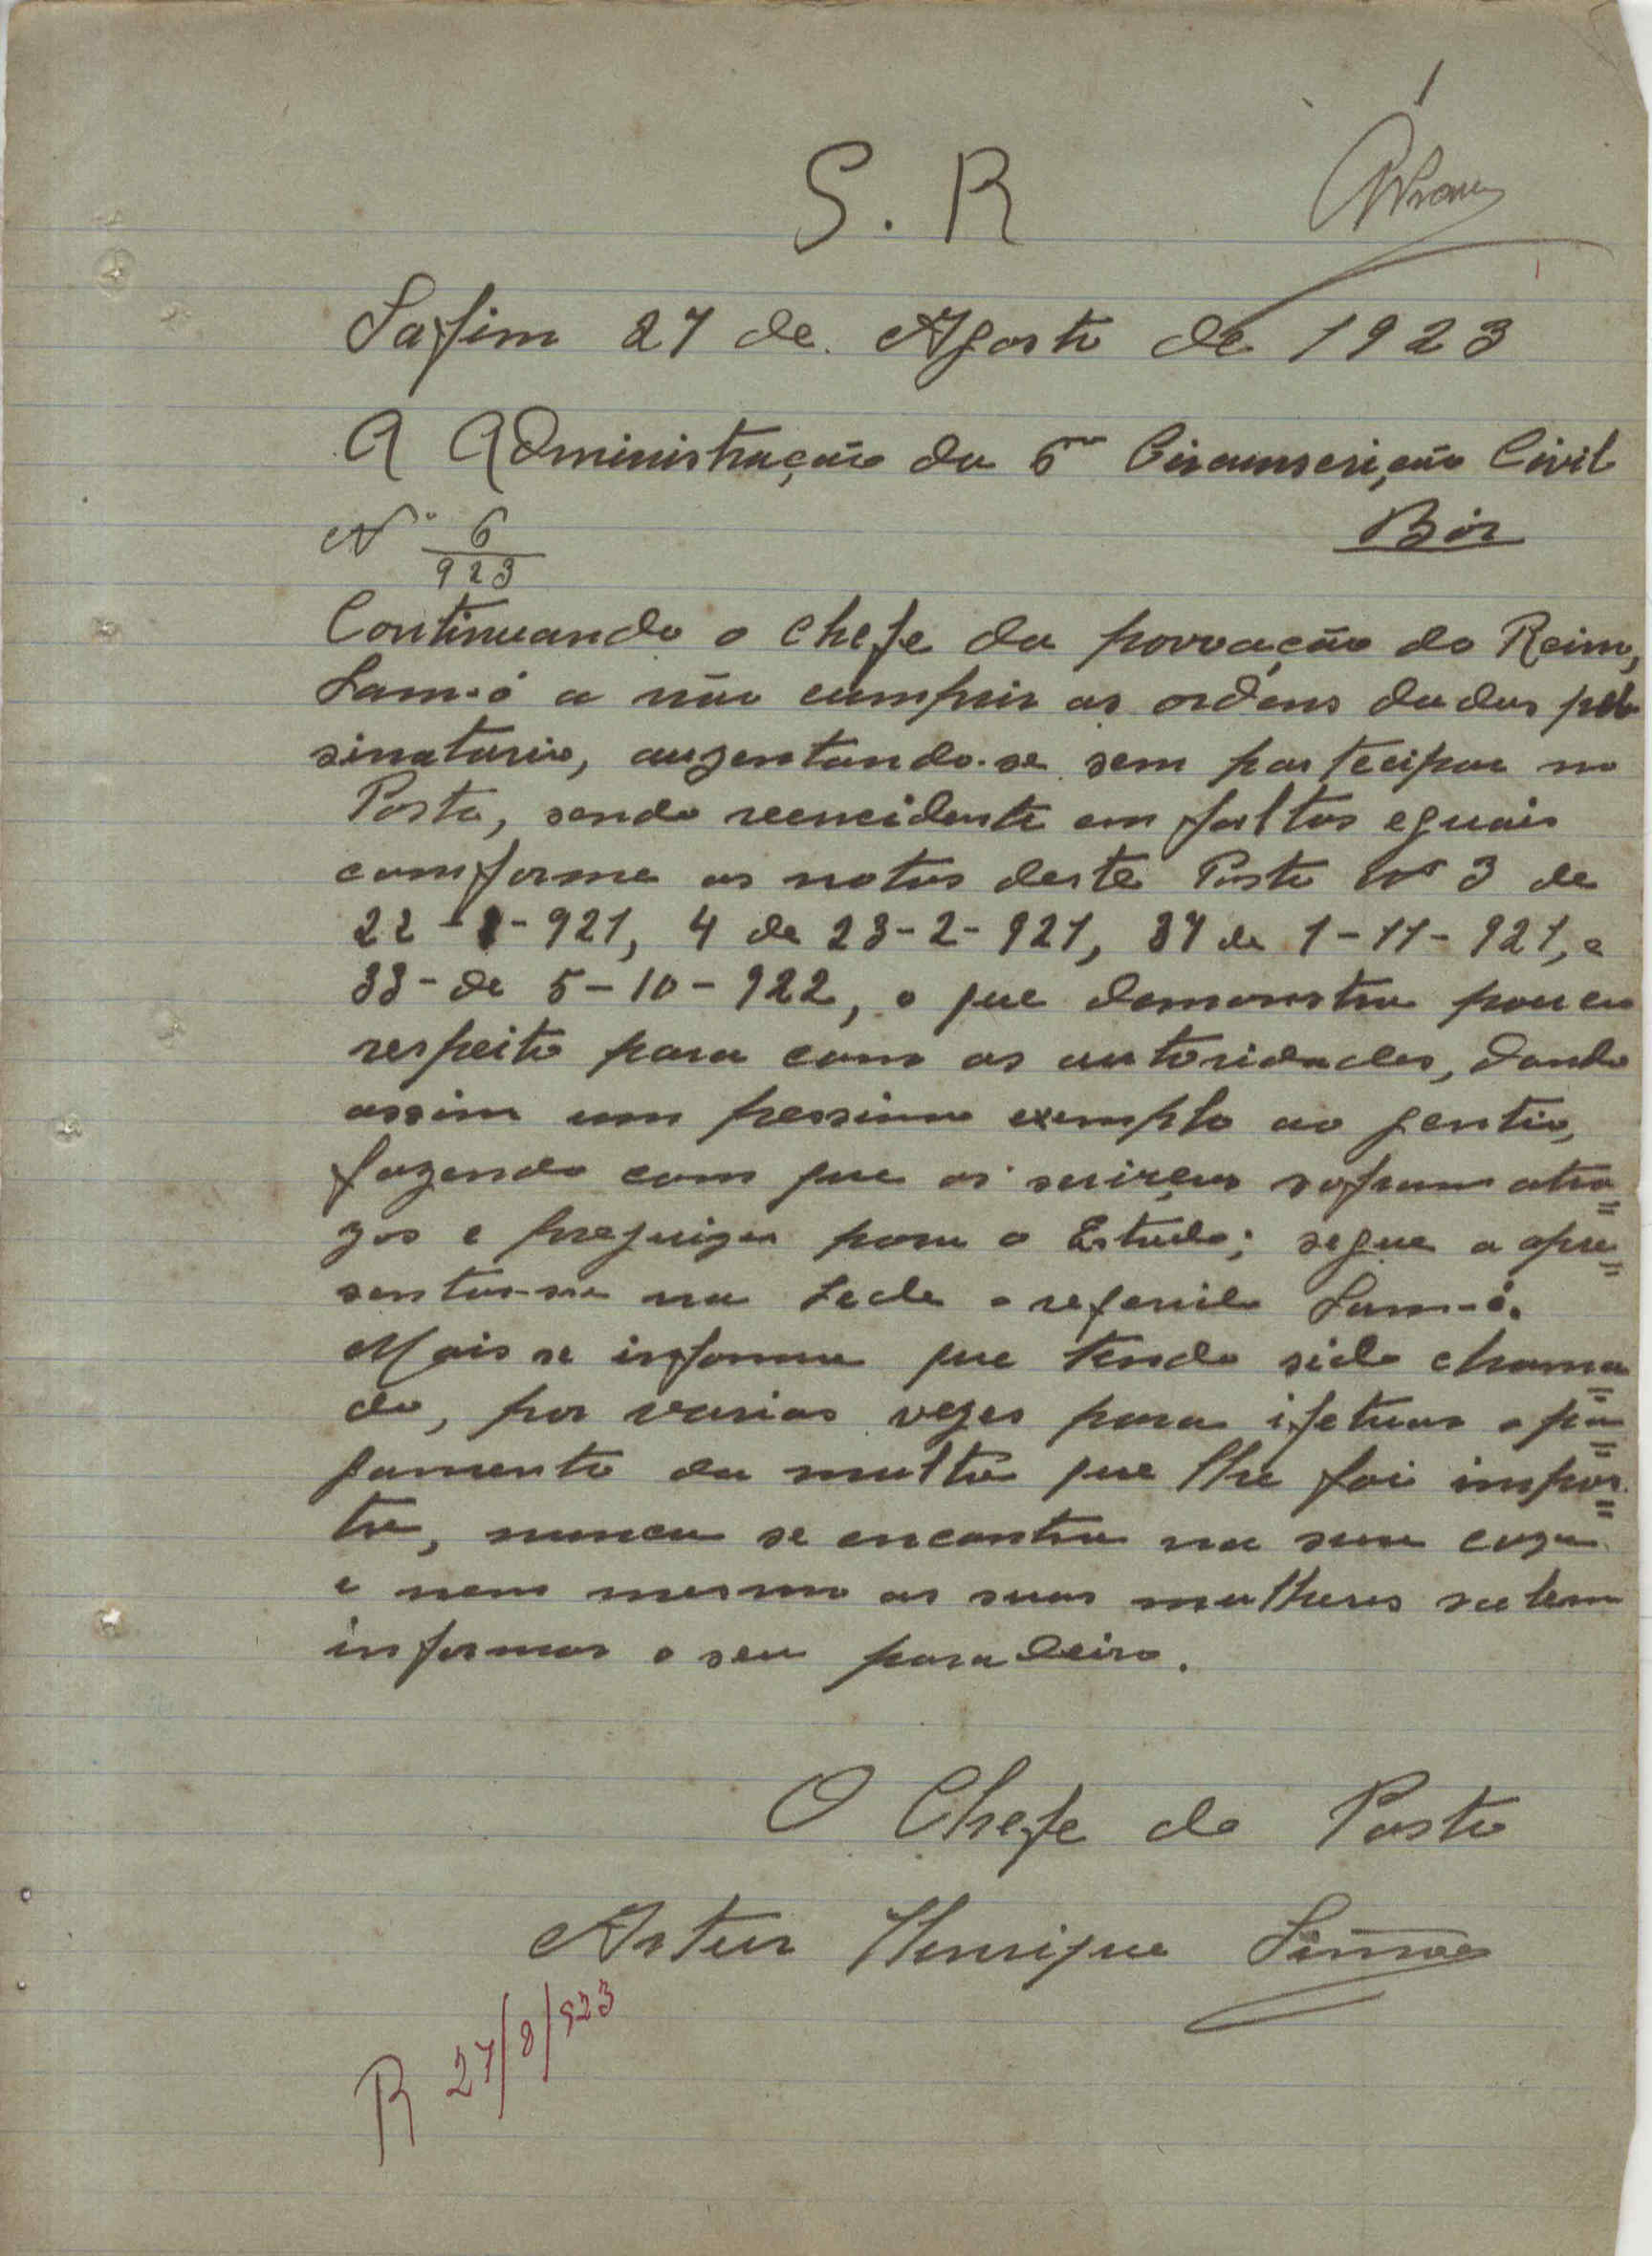 1
S. R
Safim 27 de Agosto de 1923
A Administração da 6ª Circunscrição Civil
Bôr
Nº 6/923
Continuando o chefe da povoação do Reino,
Sam-ó a não cumprir as ordens dadas pelo
sinatario, auzentando-se sem partecipar no
Posto, sendo reencidente em faltas eguais
comforme as notas deste Posto Nº 3 de
22-1-921, 4 de 23-2-921, 37 de 1-11-921, e
33- de 5-10-922, o que demonstra pouco
respeito para com as autoridades, dando
assim um pessimo exemplo ao gentio,
fazendo com que os serviços sofram atra=
zos e prejuizos para o Estado; segue a apre=
sentar-se na sede o referido Sam-ó.
Mais se informa que tendo sido chama=
do, por varias vezes para ifetuar o pa=
gamento da multa que lhe foi impos=
ta, nunca se encontra na sua caza
e nem mesmo as suas mulheres sabem
informar o seu paradeiro.
O Chefe do Posto
Artur Henrique Simões
R 27/8/923